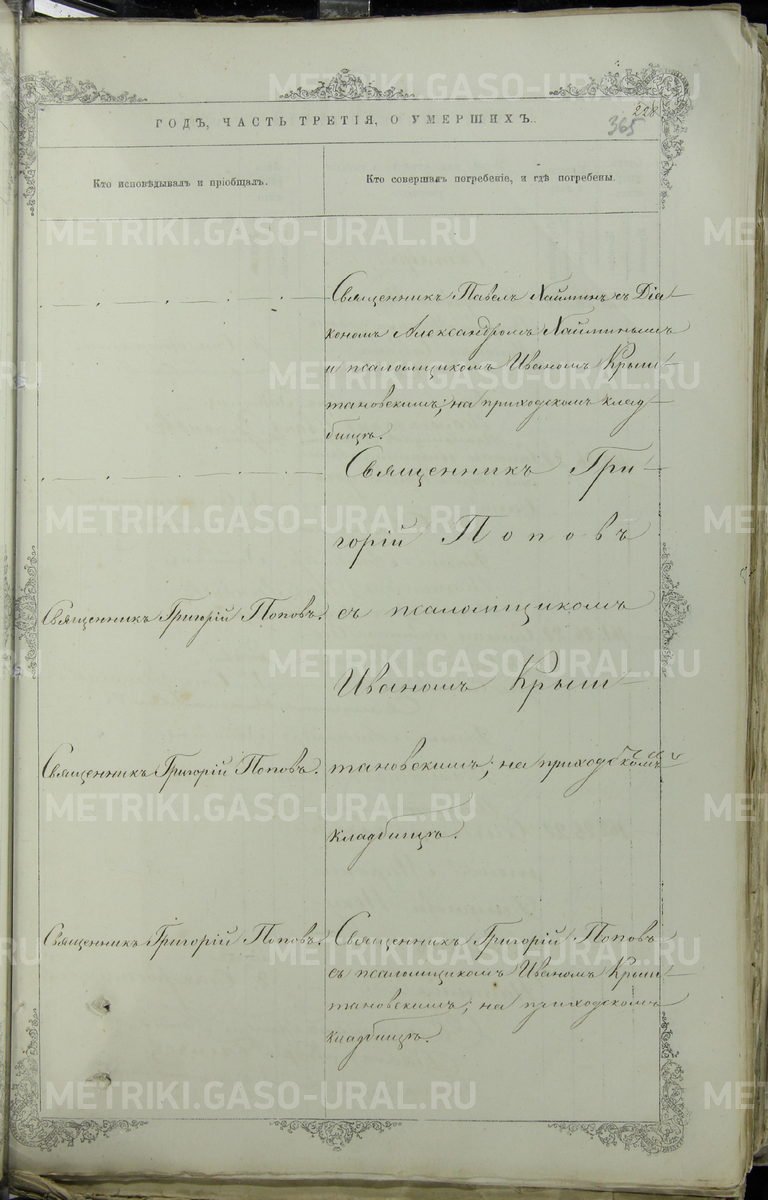 ГОДЪ, ЧАСТЬ ТРЕТІЯ, О УМЕРШИХЪ.
228
365
Кто исповѣдывалъ и пріобщалъ.
Кто совершалъ погребеніе, и гдѣ погребены.
Священникъ Павелъ Наймшинъ съ Діа-
кономъ Александромъ Наймшинымъ
и псаломщикомъ Иваномъ Крыш-
тановскимъ; на приходскомъ клад-
бищѣ.
Священникъ Гри-
горій Поповъ
Священникъ Григорій Поповъ.
съ псаломщикомъ
Иваномъ Крыш-
Священникъ Григорій Поповъ.
тановскимъ; на приходскомъ
кладбищѣ.
Священникъ Григорій Поповъ.
Священникъ Григорій Поповъ
съ псаломщикомъ Иваномъ Крыш-
тановскимъ; на приходскомъ
кладбищѣ.
METRIKI.GASO-URAL.RU